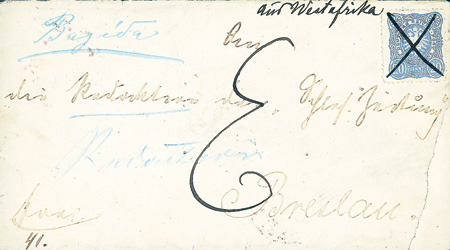 aus Westafrika
Bagida
An
die Redaktion der „Schles. Zeitung"
Redaktion
E
Breslau.
41.